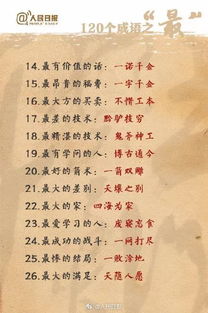 @人民日报
120个成语之“最”
14.最有价值的话：一诺千金
15.最昂贵的稿费：一字千金
16.最大方的买卖：不惜工本
17.最差的技术：黔驴技穷
18.最精湛的技术：鬼斧神工
19.最有学问的人：博古通今
20.最好的箭术：一箭双雕
21.最大的差别：天壤之别
22.最大的家：四海为家
23.最爱学习的人：废寝忘食
24.最成功的战斗：一网打尽
25.最惨的结局：一败涂地
26.最大的满足：天随人愿
@人民日报